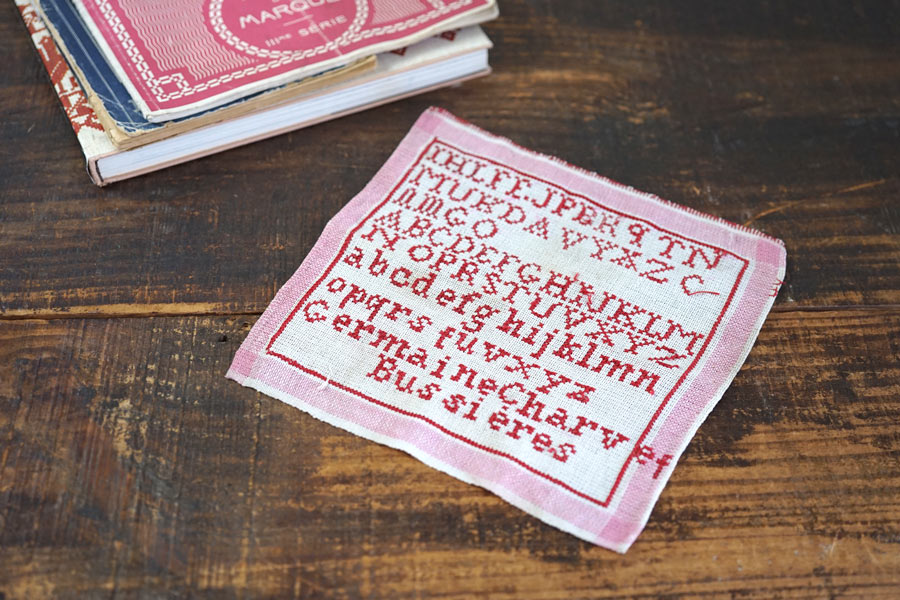 MARQUE
IIIme SÉRIE
IHLFEJPBRQTN
MUKDAVYXZC
ABCDEFGHIJKLM
NOPRSTUVXYZ
abcdefghijklmn
opqrs tuvxyz
Germaine Charvet
Bussières